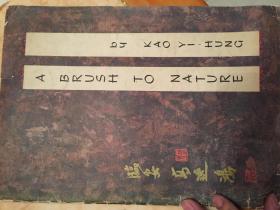 by KAO YI-HUNG
A BRUSH TO NATURE
臨安 高逸鴻